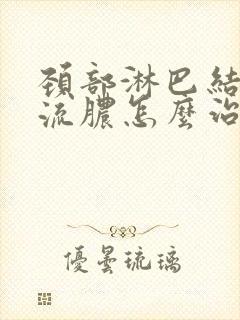 頚部淋巴結
流膿怎麼治
優曇琉璃